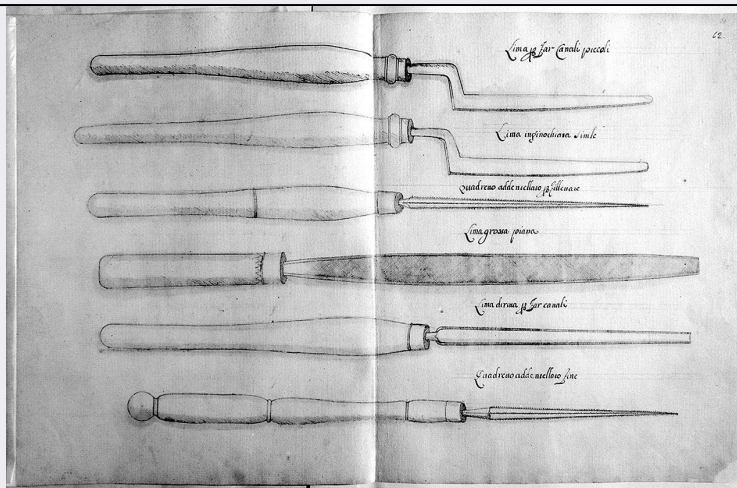 62
Lima ꝑ far Canali piccoli
Lima inginochiata simile
Quadreto addentellato ꝑ
Lima grossa piana
Lima dirita ꝑ far canali
Quadreto addentellato fine